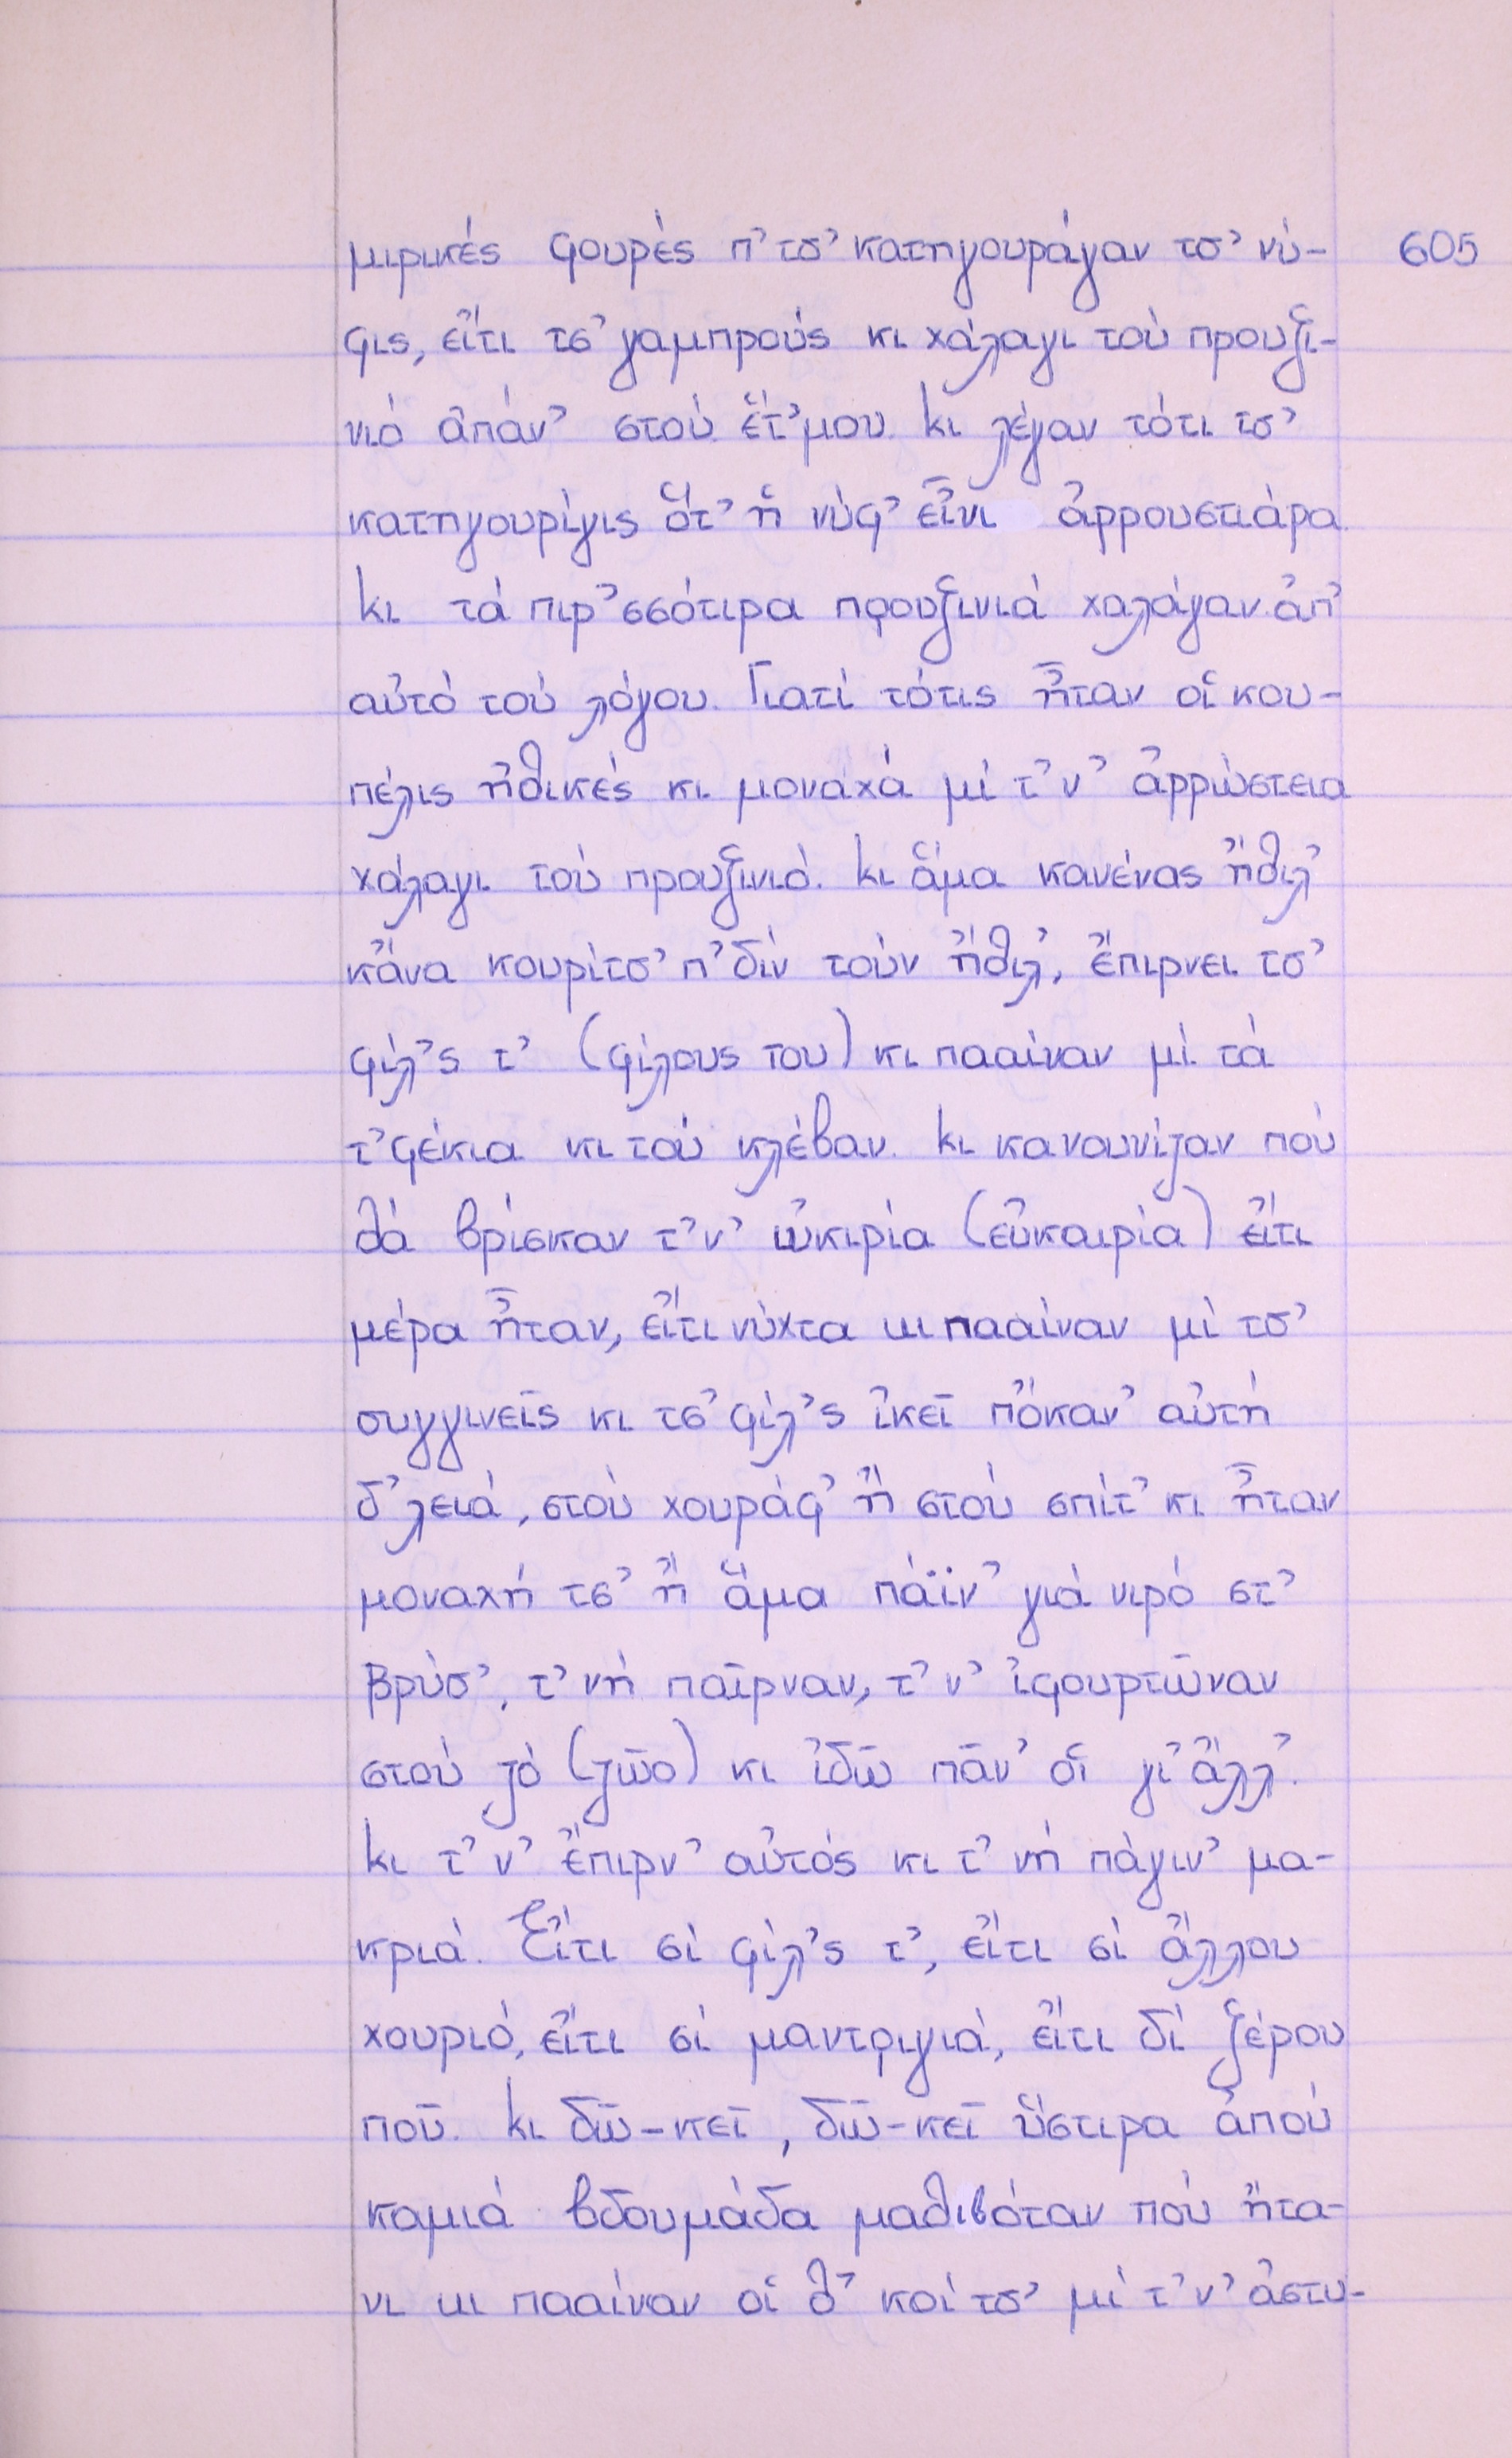 μιρικές φουρές π' τσ' κατηγουράγαν τσ' νύ- 605
φις, εἴτι τσ' γαμπρούς κι χάλαγι τού προυξι-
νιό ἀπάν' στού ἕτ'μου. κι λέγαν τότι τσ'
κατηγουρίγις ὅτ' ἡ νύφ' εἶνι ἀρρουστιάρα
κι τά πιρ'σσότιρα προυξινιά χαλάγαν ἀπ'
αὐτό τού λόγου. Γιατί τότις ἦταν οἱ κου-
πέλις ἠθικές κι μοναχά μί τ'ν' ἀρρώστεια
χάλαγι τού προυξινιό. κι ἅμα κανένας ἤθιλ'
κἄνα κουρίτσ' π' δίν τούν ἤθιλ', ἔπιρνει τσ'
φίλ'ς τ' (φίλους του) κι πααίναν μί τά
τ'φέκια κι τού κλέβαν. κι κανουνίζαν πού
θά βρίσκαν τ'ν' ὐκιρία (εὐκαιρία) εἴτι
μέρα ἦταν, εἴτι νύχτα κι πααίναν μί τσ'
συγγινεῖς κι τσ' φίλ'ς ἰκεῖ πὄκαν' αὐτή
δ'λειά, στού χουράφ' ἤ στού σπίτ' κι ἦταν
μοναχή τσ' ἤ ἅμα πάϊν' γιά νιρό στ'
βρύσ', τ' νή παῖρναν, τ'ν' ἰφουρτῶναν
στού ζό (ζῶο) κι ἰδῶ πᾶν' οἱ γι' ἄλλ'.
κι τ'ν' ἔπιρν' αὐτός κι τ' νή πάγιν' μα-
κριά. Εἴτι σί φίλ'ς τ', εἴτι σί ἄλλου
χουριό, εἴτι σί μαντριγιά, εἴτι δί ξέρου
ποῦ. κι δῶ-κεῖ, δῶ-κεῖ ὕστιρα ἀπού
καμιά βδουμάδα μαθιβόταν πού ἤτα-
νι κι πααίναν οἱ δ' κοί τσ' μί τ'ν' ἀστυ-